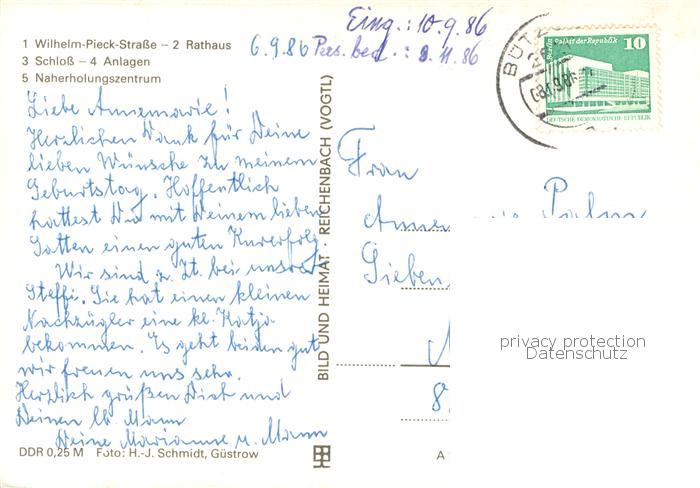 1 Wilhelm-Pieck-Straße – 2 Rathaus
3 Schloß – 4 Anlagen
5 Naherholungszentrum
Eing.: 10.9.86
6.9.86 Pers. ben.: 3.11.86
Liebe Annemarie!
Herzlichen Dank für Deine
lieben Wünsche zu meinem
Geburtstag. Hoffentlich
hattest Du mit Deinem lieben
Gatten einen guten Kurerfolg.
Wir sind z. Zt. bei unsrer
Steffi. Sie hat einen kleinen
Nachzügler eine kl. Katja
bekommen. Es geht beiden gut
wir freuen uns sehr.
Herzlich grüßen Dich und
Deinen lb. Mann
Deine Marianne u. Mann
DDR 0,25 M Foto: H.-J. Schmidt, Güstrow
BILD UND HEIMAT · REICHENBACH (VOGTL)
BÜTZ
Berlin Palast der Republik 10
DEUTSCHE DEMOKRATISCHE REPUBLIK
Frau
Palm
Sieben
8
A
privacy protection
Datenschutz